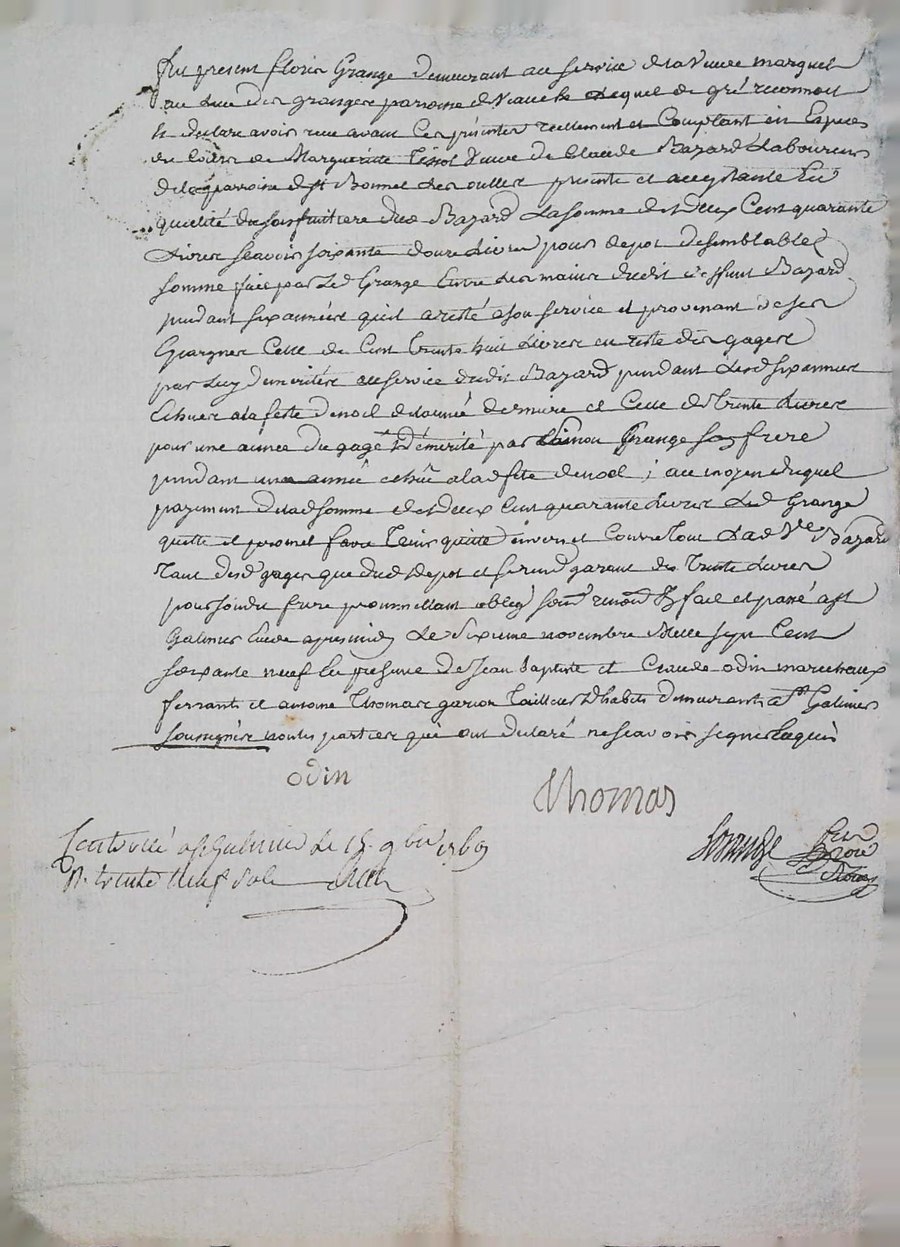 fut present floris Grange demeurant au service de la Veuve marquet
au lieu des granges paroisse de Veauche Lequel de gré reconnoit
et declare avoir reçu avant Ces présentes reellement et Comptant en Especes
de Marguerite Tissot veuve de Claude Bazard Laboureur
de la parroisse de St Bonnet Les oulles presente et aceptante En
qualité du Bazard La somme de deux Cent quarante
Livres sçavoir soixante douze Livres pour depot de semblable
somme fait par Led Grange Entre Les mains dudit deffunt Bazard
pendant six années qu'il a resté a son service et provenant de ses
Epargnes Celle de Cent trente huit Livres en reste des gages
par Luy demerités au service dudit Bazard pendant Lesd six années
Echues a la feste de noel de l'année derniere et Celle de trente Livres
pour une année du gage démerité par Grange son frere
pendant une année echue a lad fete de noel ; au moyen duquel
payement de lad somme de deux Cent quarante Livres Led Grange
quitte et promet faire tenir quitte envers et Contre tout Lad Ve Bazard
tant desd gages que dud depot et se rend garant des trente Livres
pour sondit frere promettant oblig soum renon fait et passé a St
Galmier Etude apres midy Le sixieme novembre Mille sept Cent
soixante neuf En presence de Jean Baptiste et Claude odin marechaux
ferrants et antoine Thomas garçon tailleur d'habits demeurants a St Galmier
soussignés non les parties qui ont declaré ne sçavoir signer Enquis
odin
Thomas
Controllé a St Galmier le 15 9bre 1769
R. trente neuf sols